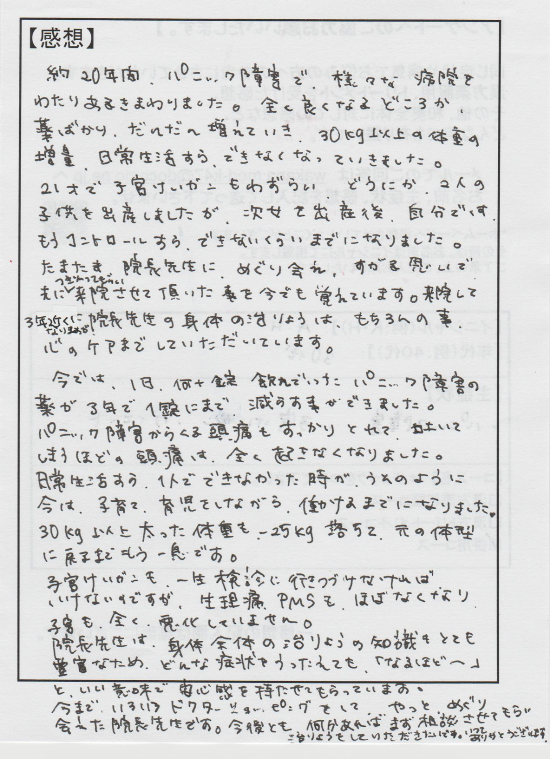 【感想】
約20年間、パニック障害で 様々な病院を
わたりあるきまわりました。全く良くなるどころか、
薬ばかり、だんだん増えていき、30kg以上の体重の
増量、日常生活すら、できなくなっていきました。
21才で子宮けいがんもわずらい、どうにか、2人の
子供を出産しましたが、次女を出産後、自分です
もうコントロールすら、できないくらいまでになりました。
たまたま、院長先生に、めぐり会え、すがる思いで
夫に つきそってもらい 来院させて頂いた事を今でも覚えています。来院して
3年近くになりますが 院長先生の身体の治りょうは、もちろんの事、
心のケアまでしていただいています。
今では、1日、何十錠 飲んでいた パニック障害の
薬が3年で1錠にまで、減らす事ができました。
パニック障害からくる頭痛もすっかりとれて、吐いて
しまうほどの頭痛は、全く起きなくなりました。
日常生活すら、1人でできなかった時が、うそのように
今は、子育て、育児をしながら、働けるまでになりました。
30kg以上太った体重も、-25kg 落ちて、元の体型
に戻るまでもう一息です。
子宮けいがんも、一生検診に行きつづけなければ、
いけないのですが、生理痛、PMSも、ほぼなくなり
子宮も、全く、悪化していません。
院長先生は、身体全体の治りょうの知識もとても
豊富なため、どんな症状をうったえても、「なるほど〜」
と、いい意味で安心感を持たせてもらっています。
今まで、いろいろドクターショッピングをして、やっと、めぐり
会えた院長先生です。今後とも、何かあればまず相談させてもらい
治りょうをしていただきたいです。いつもありがとうございます。